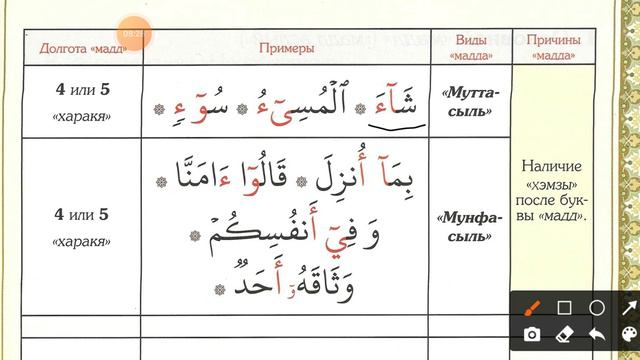 08:25
Долгота «мадд»
Примеры
Виды «мадда»
Причины «мадда»
4 или 5 «харакя»
شَآءَ ۞ ٱلْمُسِىٓءُ ۞ سُوٓءٍ ۞
«Мутта-
сыль»
4 или 5 «харакя»
بِمَآ أُنزِلَ ۞ قَالُوٓا۟ ءَامَنَّا ۞
وَفِىٓ أَنفُسِكُمْ ۞
وَثَاقَهُۥٓ أَحَدٌ ۞
«Мунфа-
сыль»
Наличие
«хэмзы»
после бук-
вы «мадд».